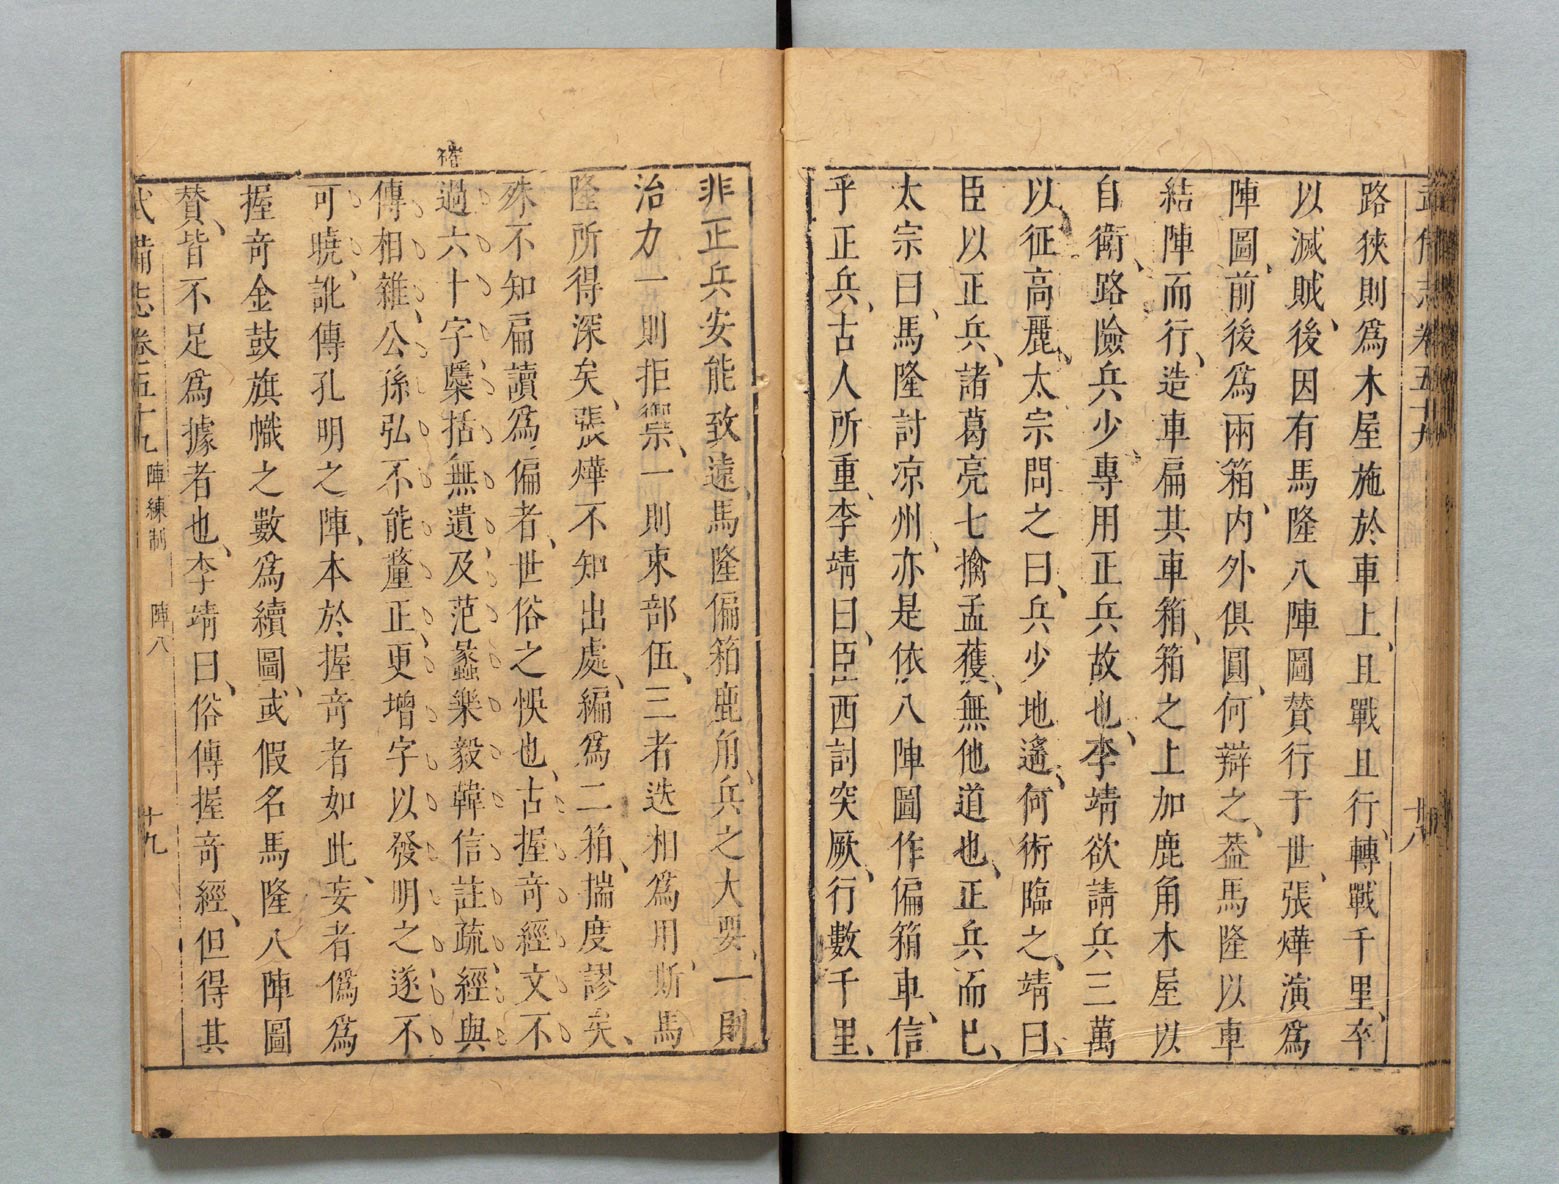 武備志卷五十九
十八
路狹則爲木屋施於車上、且戰且行、轉戰千里、卒
以滅賊、後因有馬隆八陣圖贊行于世、張燁演爲
陣圖、前後爲兩箱、内外俱圓、何辯之、葢馬隆以車
結陣而行、造車扁其車箱、箱之上加鹿角木屋以
自衛、路險兵少專用正兵故也、李靖欲請兵三萬
以征高麗、太宗問之曰、兵少地遙、何術臨之、靖曰、
臣以正兵、諸葛亮七擒孟獲、無他道也、正兵而巳、
太宗曰、馬隆討凉州、亦是依八陣圖作偏箱車、信
乎正兵、古人所重、李靖曰、臣西討突厥、行數千里、
非正兵安能致遠、馬隆偏箱鹿角、兵之大要、一則
治力一則拒禦、一則束部伍、三者迭相爲用、斯馬
隆所得深矣、張燁不知出處、編爲二箱、揣度謬矣、
殊不知扁讀爲偏者、世俗之悞也、古握奇經文不
過六十字、櫽括無遺、及范蠡樂毅韓信註疏、經與
傳相雜、公孫弘不能釐正、更增字以發明之遂不
可曉、訛傳孔明之陣、本於握奇者如此、妄者僞爲
握奇金鼓旗幟之數爲續圖、或假名馬隆八陣圖
贊、皆不足爲據者也、李靖曰、俗傳握奇經、但得其
武備志卷五十九 陣練制 陣八 十九